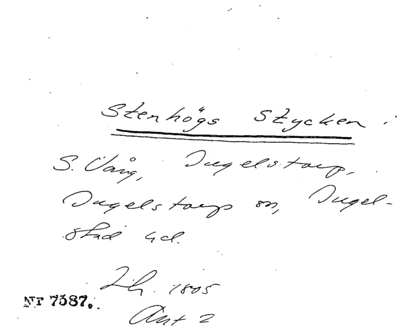 Stenhögs Stycken.
S. Vång, Ingelstorp,
Ingelstorp sn, Ingel-
stad hd.
Lh. 1805
Akt 2
Nr 7387.